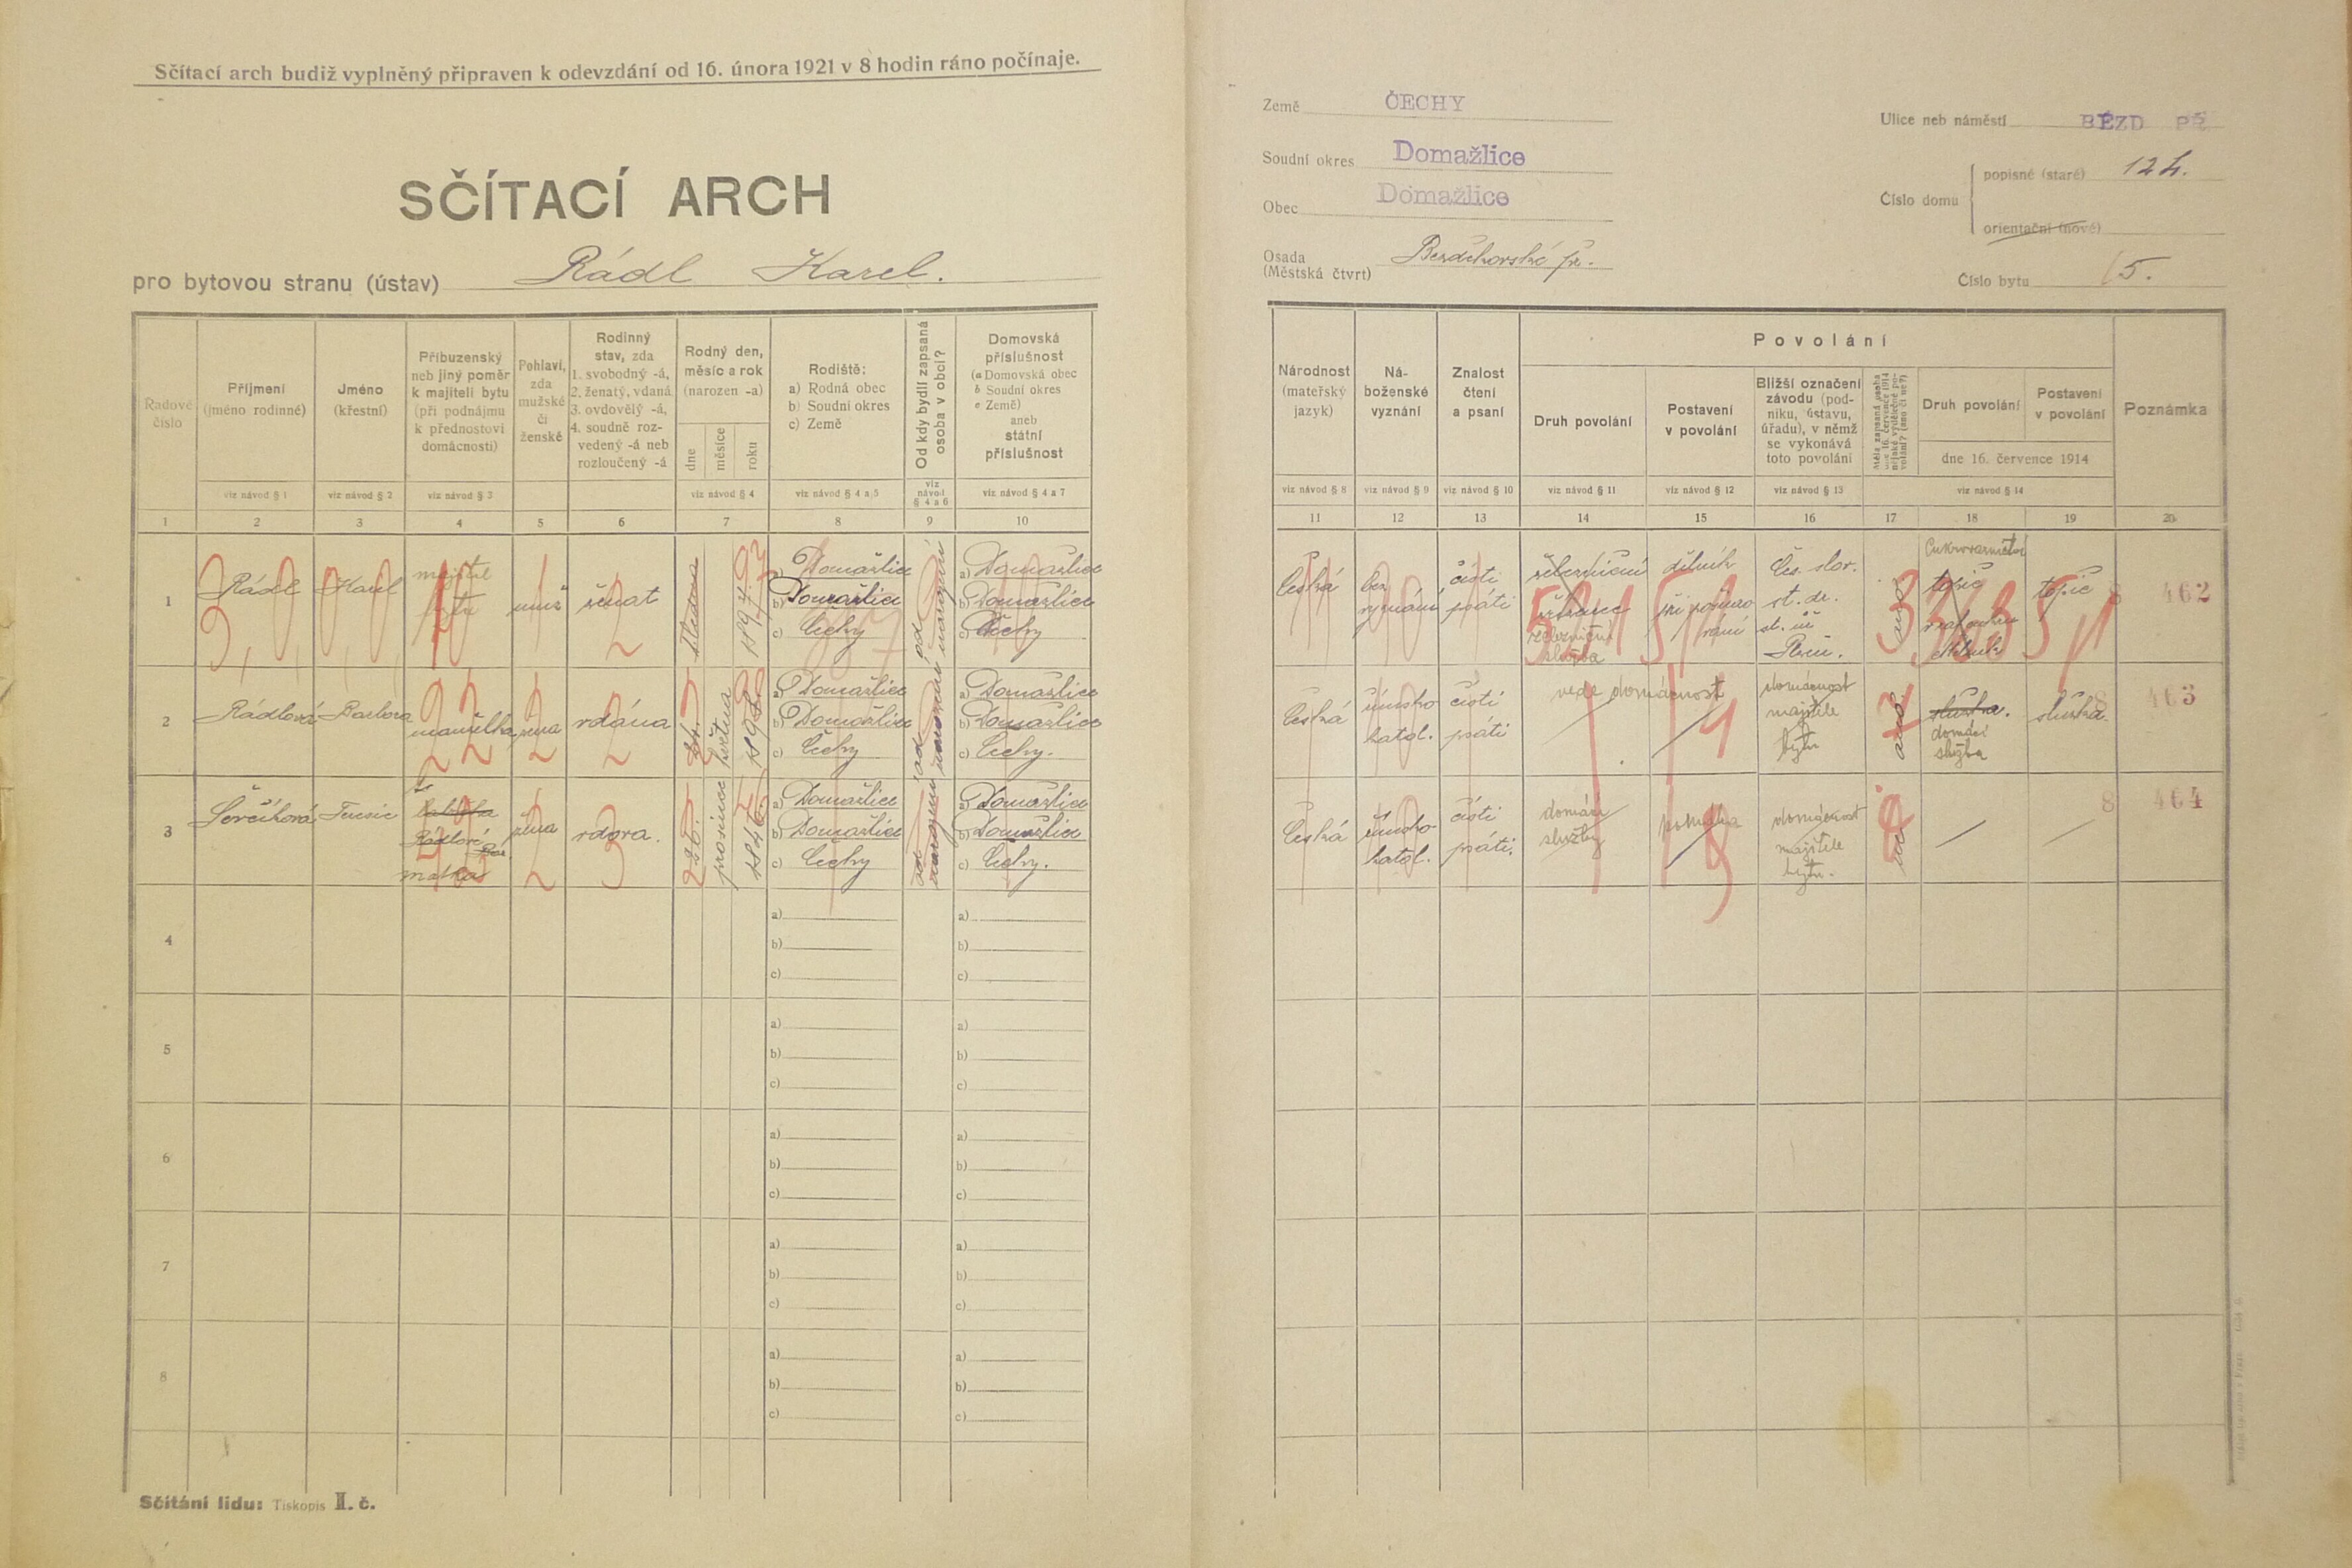 Sčítací arch budiž vyplněný připraven k odevzdání od 16. února 1921 v 8 hodin ráno počínaje.
SČÍTACÍ ARCH
pro bytovou stranu (ústav) Rádl Karel.
Země ČECHY
Soudní okres Domažlice
Obec Domažlice
Osada
(Městská čtvrt)
Ulice neb náměstí BĚZD PŘ
Číslo domu
popisné (staré) 124.
orientační (nové)
Číslo bytu 5.
Řadové
číslo
Příjmení
(jméno rodinné)
Jméno
(křestní)
Příbuzenský
neb jiný poměr
k majiteli bytu
(při podnájmu
k přednostovi
domácnosti)
Pohlaví,
zda
mužské
či
ženské
Rodinný
stav, zda
1. svobodný -á,
2. ženatý, vdaná
3. ovdovělý -á,
4. soudně roz-
vedený -á neb
rozloučený -á
Rodný den,
měsíc a rok
(narozen -a)
dne
měsíce
roku
Rodiště:
a) Rodná obec
b) Soudní okres
c) Země
Od kdy bydlí zapsaná
osoba v obci?
Domovská
příslušnost
(a Domovská obec
b Soudní okres
c Země)
aneb
státní
příslušnost
viz návod § 1
viz návod § 2
viz návod § 3
viz návod § 4
viz návod § 4 a 5
viz
návod
§ 4 a 6
viz návod § 4 a 7
1 2 3 4 5 6 7 8 9 10
Národnost
(mateřský
jazyk)
Ná-
boženské
vyznání
Znalost
čtení
a psaní
Povolání
Druh povolání
Postavení
v povolání
Bližší označení
závodu (pod-
niku, ústavu,
úřadu), v němž
se vykonává
toto povolání
Měla zapsaná osoba
dne 16. července 1914
nějaké výdělečné po-
volání? (ano či ne?)
Druh povolání
Postavení
v povolání
dne 16. července 1914
Poznámka
viz návod § 8
viz návod § 9
viz návod § 10
viz návod § 11
viz návod § 12
viz návod § 13
viz návod § 14
11 12 13 14 15 16 17 18 19 20
1
Rádl
Karel
majitel
bytu
muž
ženat
2
a) Domažlice
b) Domažlice
c) Čechy
od narození
a) Domažlice
b) Domažlice
c) Čechy
česká
bez
vyznání
čísti
psáti
železniční
železniční
služba
dělník
Čs. slov.
st. dr.
Plzeň.
ano
3
topič
topič
8
462
2
Rádlová
Barbora
manželka
žena
vdána
2
24.
května
a) Domažlice
b) Domažlice
c) Čechy
od narození
a) Domažlice
b) Domažlice
c) Čechy.
česká
římsko
katol.
čísti
psáti
vede domácnost
domácnost
majitele
bytu
ano
služka.
domácí
služba
služka.
8
463
3
Ševčíková
Terezie
Rádlové
matka
žena
vdova.
3
prosince
1846.
a) Domažlice
b) Domažlice
c) Čechy
od narození
a) Domažlice
b) Domažlice
c) Čechy.
česká
římsko
katol.
čísti
psáti.
domácí
služby
domácnost
majitele
bytu.
8
464
4
a)
b)
c)
a)
b)
c)
5
a)
b)
c)
a)
b)
c)
6
a)
b)
c)
a)
b)
c)
7
a)
b)
c)
a)
b)
c)
8
a)
b)
c)
a)
b)
c)
Sčítání lidu: Tiskopis II. č.